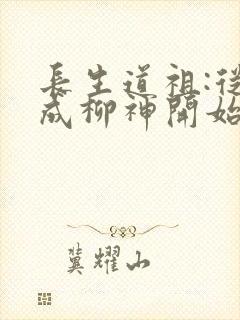 長生道祖:從
成柳神開始
冀耀山